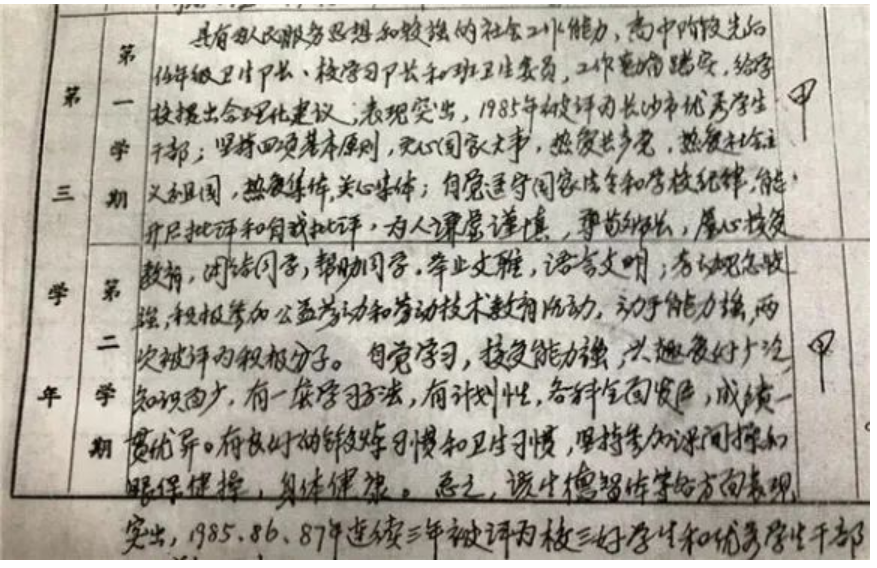 具有为人民服务思想和较强的社会工作能力，高中阶段先后
任年级卫生部长、校学习部长和班卫生委员，工作勤恳踏实，给学
校提出合理化建议，表现突出，1985年被评为长沙市优秀学生
干部；坚持四项基本原则，关心国家大事，热爱共产党，热爱社会主
义祖国，热爱集体，关心集体；自觉遵守国家法令和学校纪律，能
开展批评和自我批评，为人谦虚谨慎，尊敬师长，虚心接受
教育，团结同学，帮助同学，举止文雅，语言文明；劳动观念较
强，积极参加公益劳动和劳动技术教育活动，动手能力强，两
次被评为积极分子。自觉学习，接受能力强，兴趣爱好广泛，
知识面广，有一套学习方法，有计划性，各科全面发展，成绩一
贯优异。有良好的锻炼习惯和卫生习惯，坚持参加课间操和
眼保健操，身体健康。总之，该生德智体等各方面表现
突出，1985.86.87年连续三年被评为校三好学生和优秀学生干部
第三学年
第一学期
第二学期
甲
甲